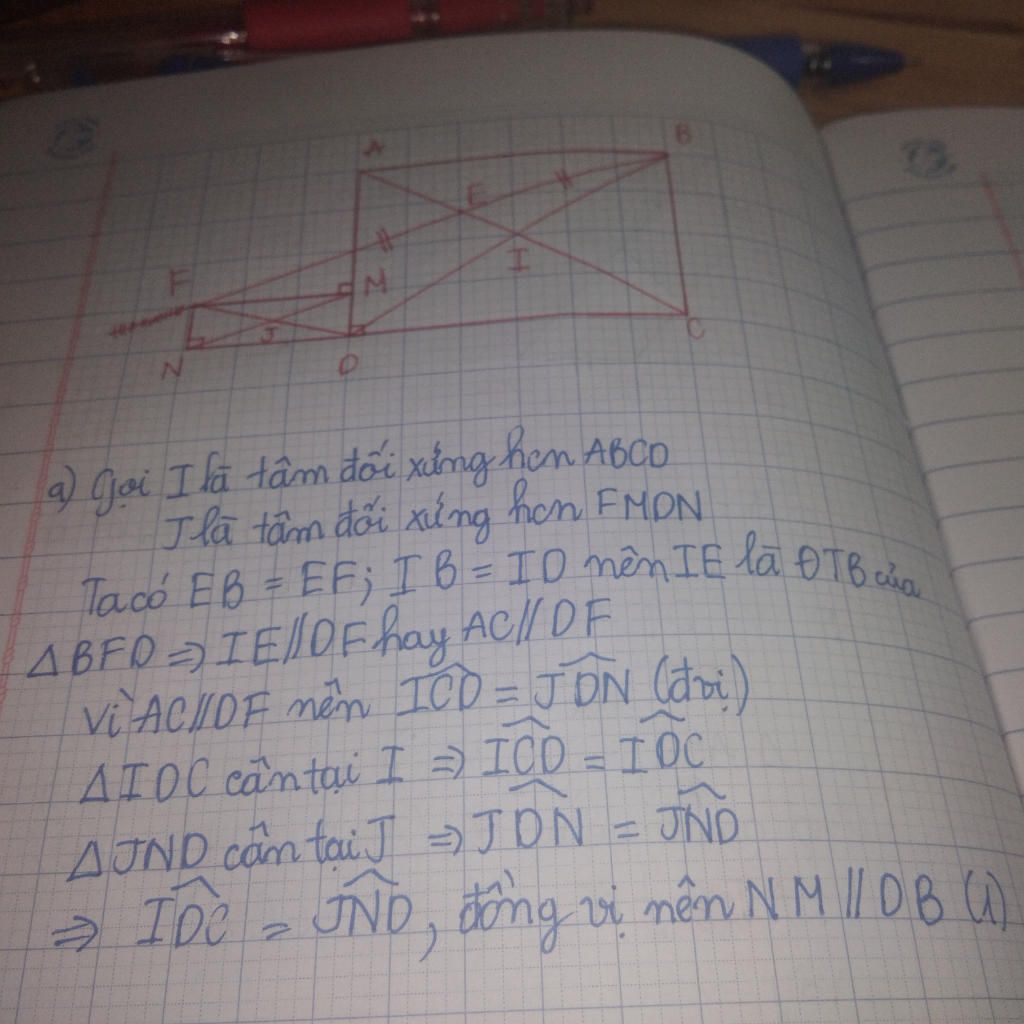 A
B
E
I
F
M
J
N
D
C
a) Gọi I là tâm đối xứng hcn ABCD
J là tâm đối xứng hcn FMDN
Ta có EB = EF; IB = ID nên IE là ĐTB của
△BFD ⇒ IE//DF hay AC//DF
Vì AC//DF nên \widehat{ICD} = \widehat{JDN} (đvị)
△IDC cân tại I ⇒ \widehat{ICD} = \widehat{IDC}
△JND cân tại J ⇒ \widehat{JDN} = \widehat{JND}
⇒ \widehat{IDC} = \widehat{JND}, đồng vị nên NM // DB (1)